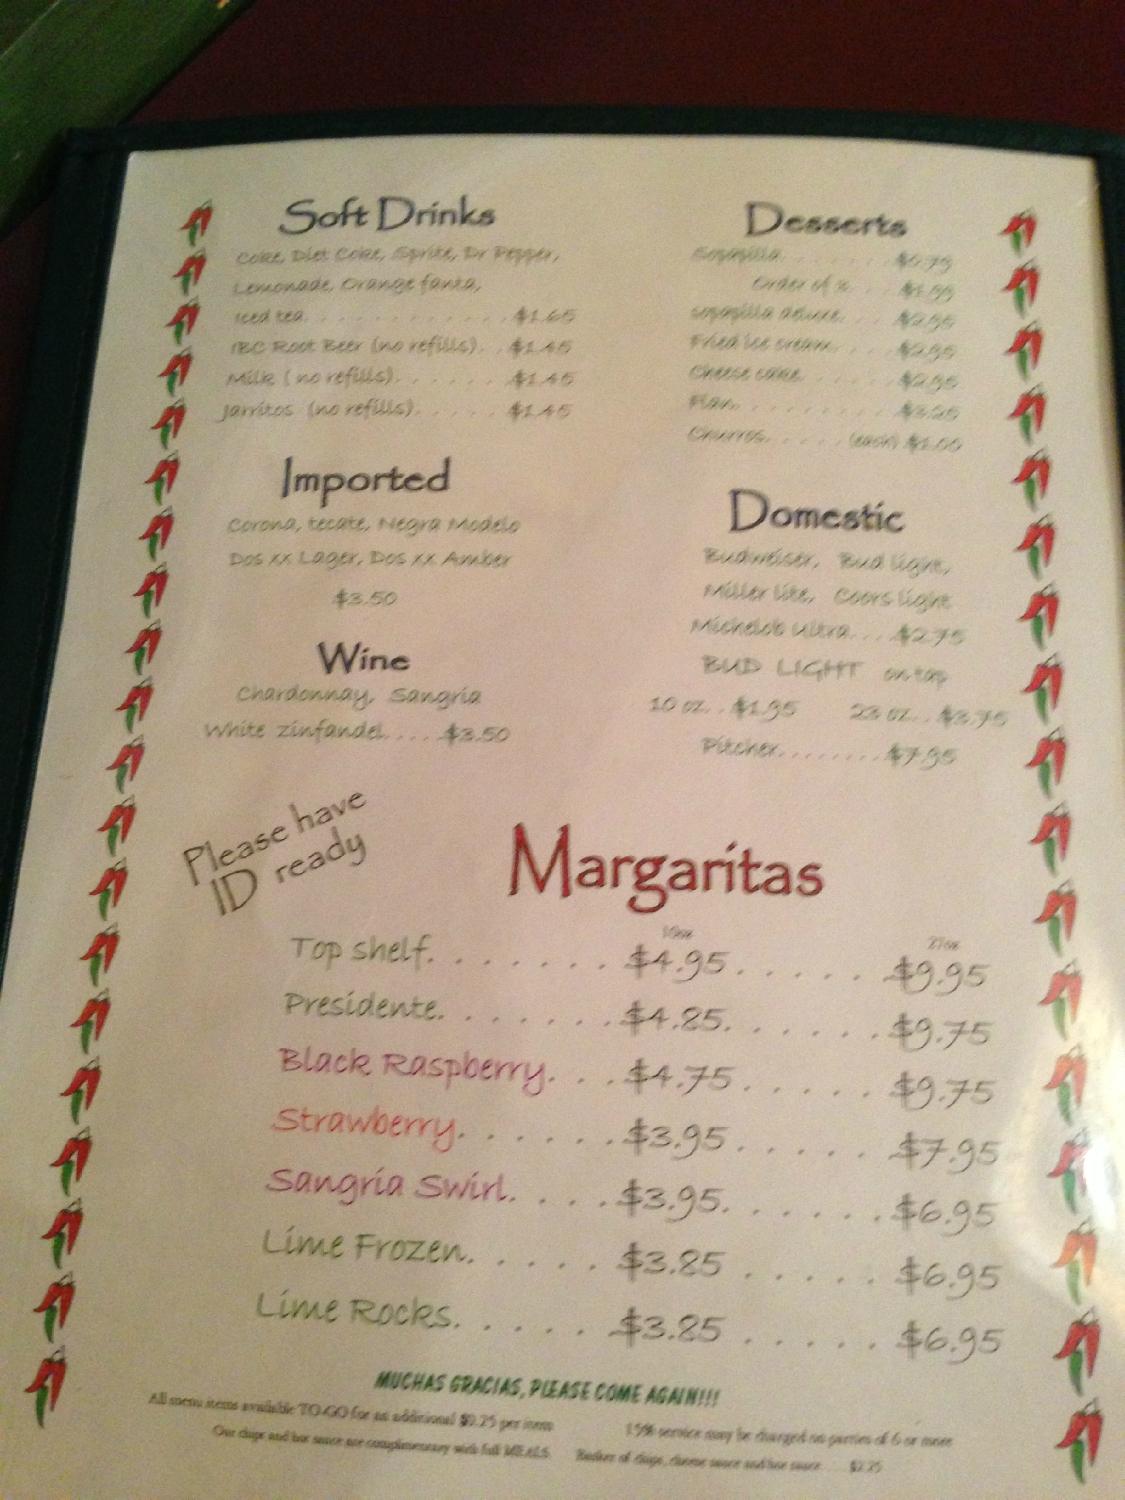 Soft Drinks
Coke, Diet Coke, Sprite, Dr Pepper,
Lemonade, Orange fanta,
Iced tea. . . . . . . . . . . . $1.65
IBC Root Beer (no refills). . $1.45
Milk ( no refills). . . . . . $1.45
Jarritos (no refills). . . . . $1.45
Imported
Corona, tecate, Negra Modelo
Dos xx Lager, Dos xx Amber
$3.50
Wine
Chardonnay, Sangria
White zinfandel. . . . . $3.50
Desserts
Sopapilla. . . . . . . $0.75
Order of . . . $1.95
sopapilla deluxe. . . $2.95
Fried ice cream. . . . $2.95
Cheese cake. . . . . . $2.95
Flan. . . . . . . . . $3.25
Churros. . . . . (each) $1.00
Domestic
Budweiser, Bud light,
Miller lite, Coors light
Michelob ultra. . . $2.75
BUD LIGHT on tap
10 oz. . $1.95 23 oz. . $3.75
Pitcher. . . . . . . . $7.95
Please have
ID ready
Margaritas
10oz 27oz
Top shelf. . . . . . . . $4.95. . . . . . $9.95
Presidente. . . . . . . $4.85. . . . . . $9.75
Black Raspberry. . . $4.75. . . . . . $9.75
Strawberry. . . . . . . $3.95. . . . . . $7.95
Sangria Swirl. . . . . $3.95. . . . . . $6.95
Lime Frozen. . . . . . $3.85 . . . . . $6.95
Lime Rocks. . . . . . $3.85 . . . . . $6.95
MUCHAS GRACIAS, PLEASE COME AGAIN!!!
All menu items available TO-GO for an additional $0.25 per item 15% service may be charged on parties of 6 or more
Our chips and hot sauce are complimentary with full MEALS. Basket of chips, cheese sauce and hot sauce . . . $2.25